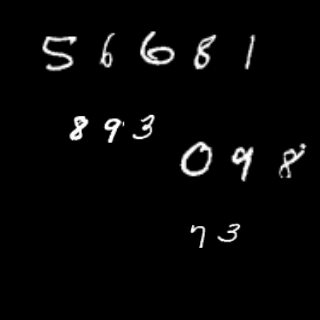 56681
893
098
73